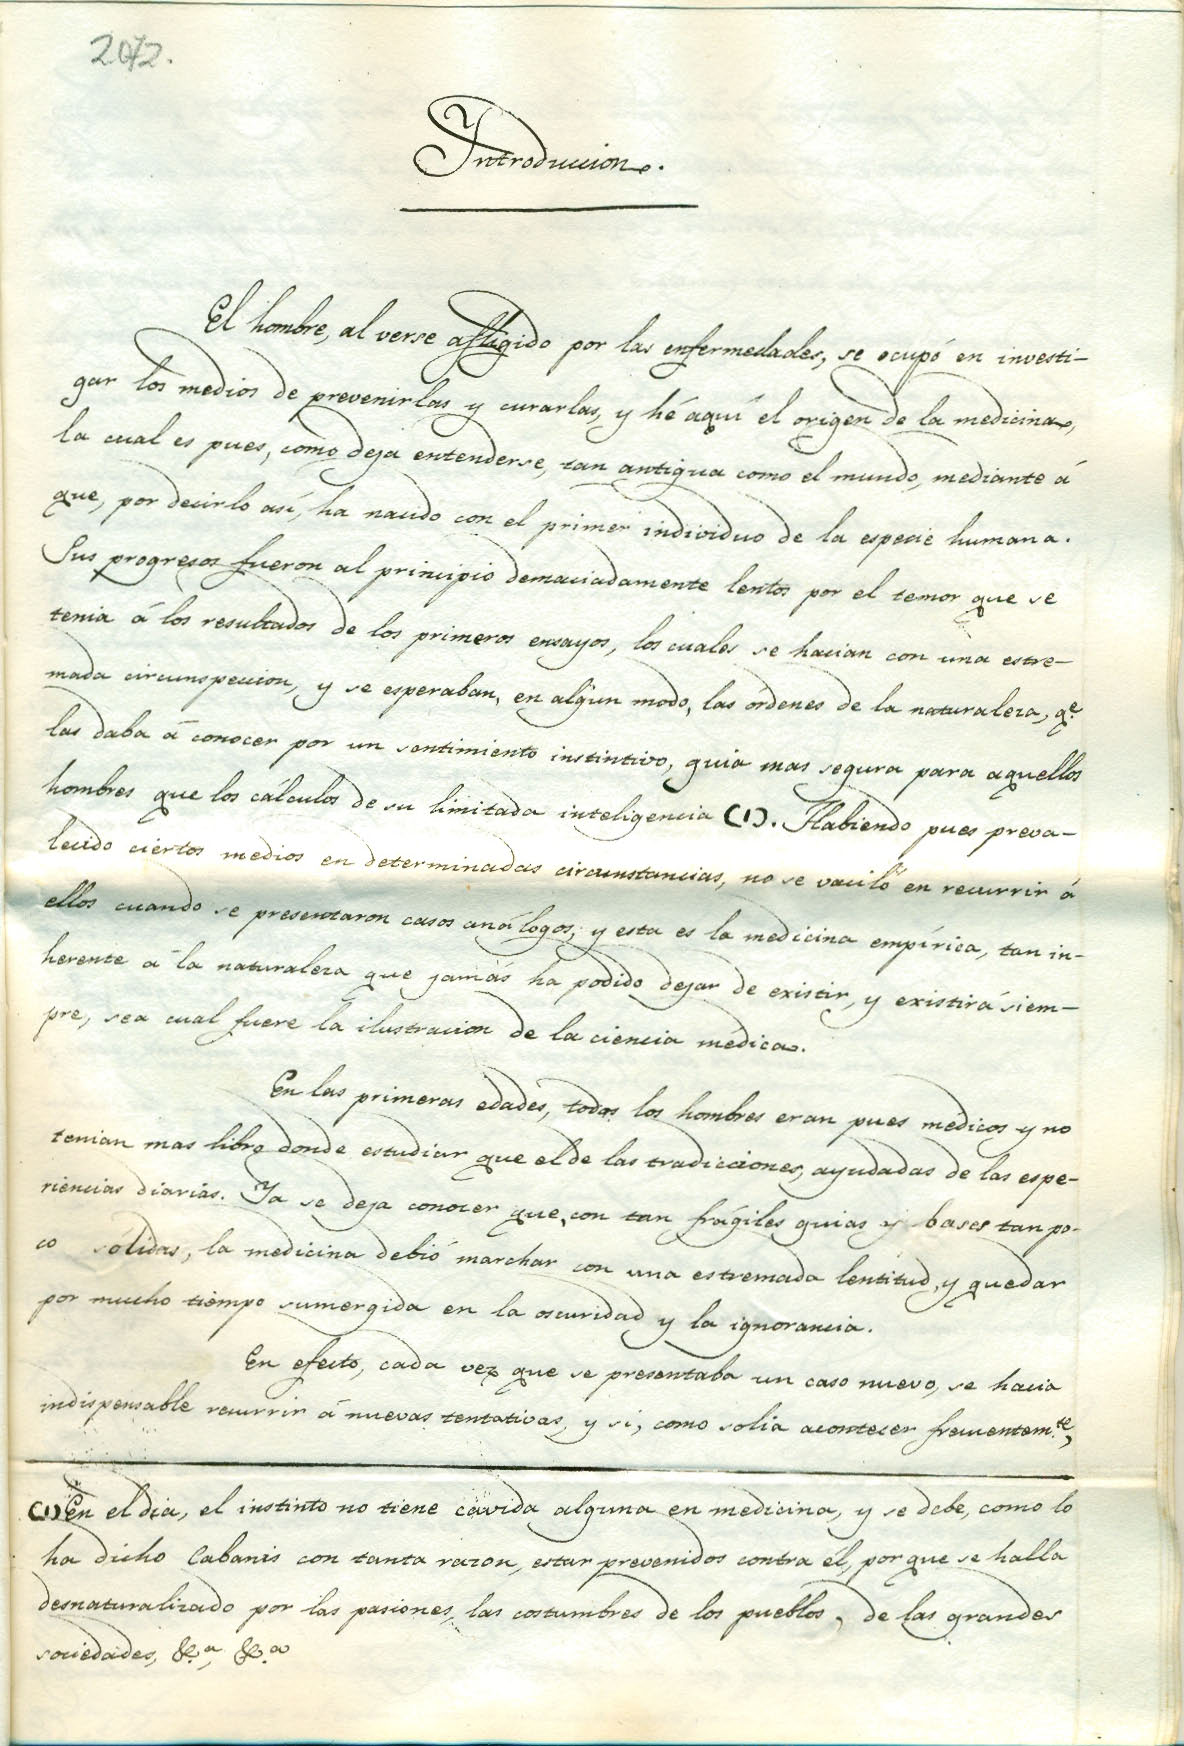 2072.
Introduccion.
El hombre, al verse afligido por las enfermedades, se ocupó en investi-
gar los medios de prevenirlas y curarlas, y hé aquí el origen de la medicina,
la cual es pues, como deja entenderse, tan antigua como el mundo, mediante á
que, por decirlo así, ha nacido con el primer individuo de la especie humana.
Sus progresos fueron al principio demaciadamente lentos por el temor que se
tenia á los resultados de los primeros ensayos, los cuales se hacian con una estre-
mada circunspeccion, y se esperaban, en algun modo, las órdenes de la naturaleza, qe.
las daba á conocer por un sentimiento instintivo, guia mas segura para aquellos
hombres que los cálculos de su limitada inteligencia (1). Habiendo pues preva-
lecido ciertos medios en determinadas circunstancias, no se vaciló en recurrir á
ellos cuando se presentaron casos análogos; y esta es la medicina empírica, tan in-
herente á la naturaleza que jamás ha podido dejar de existir, y existirá siem-
pre, sea cual fuere la ilustracion de la ciencia médica.
En las primeras edades, todos los hombres eran pues medicos y no
tenian mas libro donde estudiar que el de las tradicciones, ayudadas de las espe-
riencias diarias. Ya se deja conocer que, con tan frágiles guias y bases tan po-
co sólidas, la medicina debió marchar con una estremada lentitud, y quedar
por mucho tiempo sumergida en la oscuridad y la ignorancia.
En efecto, cada vez que se presentaba un caso nuevo, se hacia
indispensable recurrir á nuevas tentativas, y si, como solia acontecer frecuentem.te,
(1) En el dia, el instinto no tiene cavida alguna en medicina, y se debe, como lo
ha dicho Cabanis con tanta razon, estar prevenidos contra él, porque se halla
desnaturalizado por las pasiones, las costumbres de los pueblos, de las grandes
sociedades, &.a, &.a